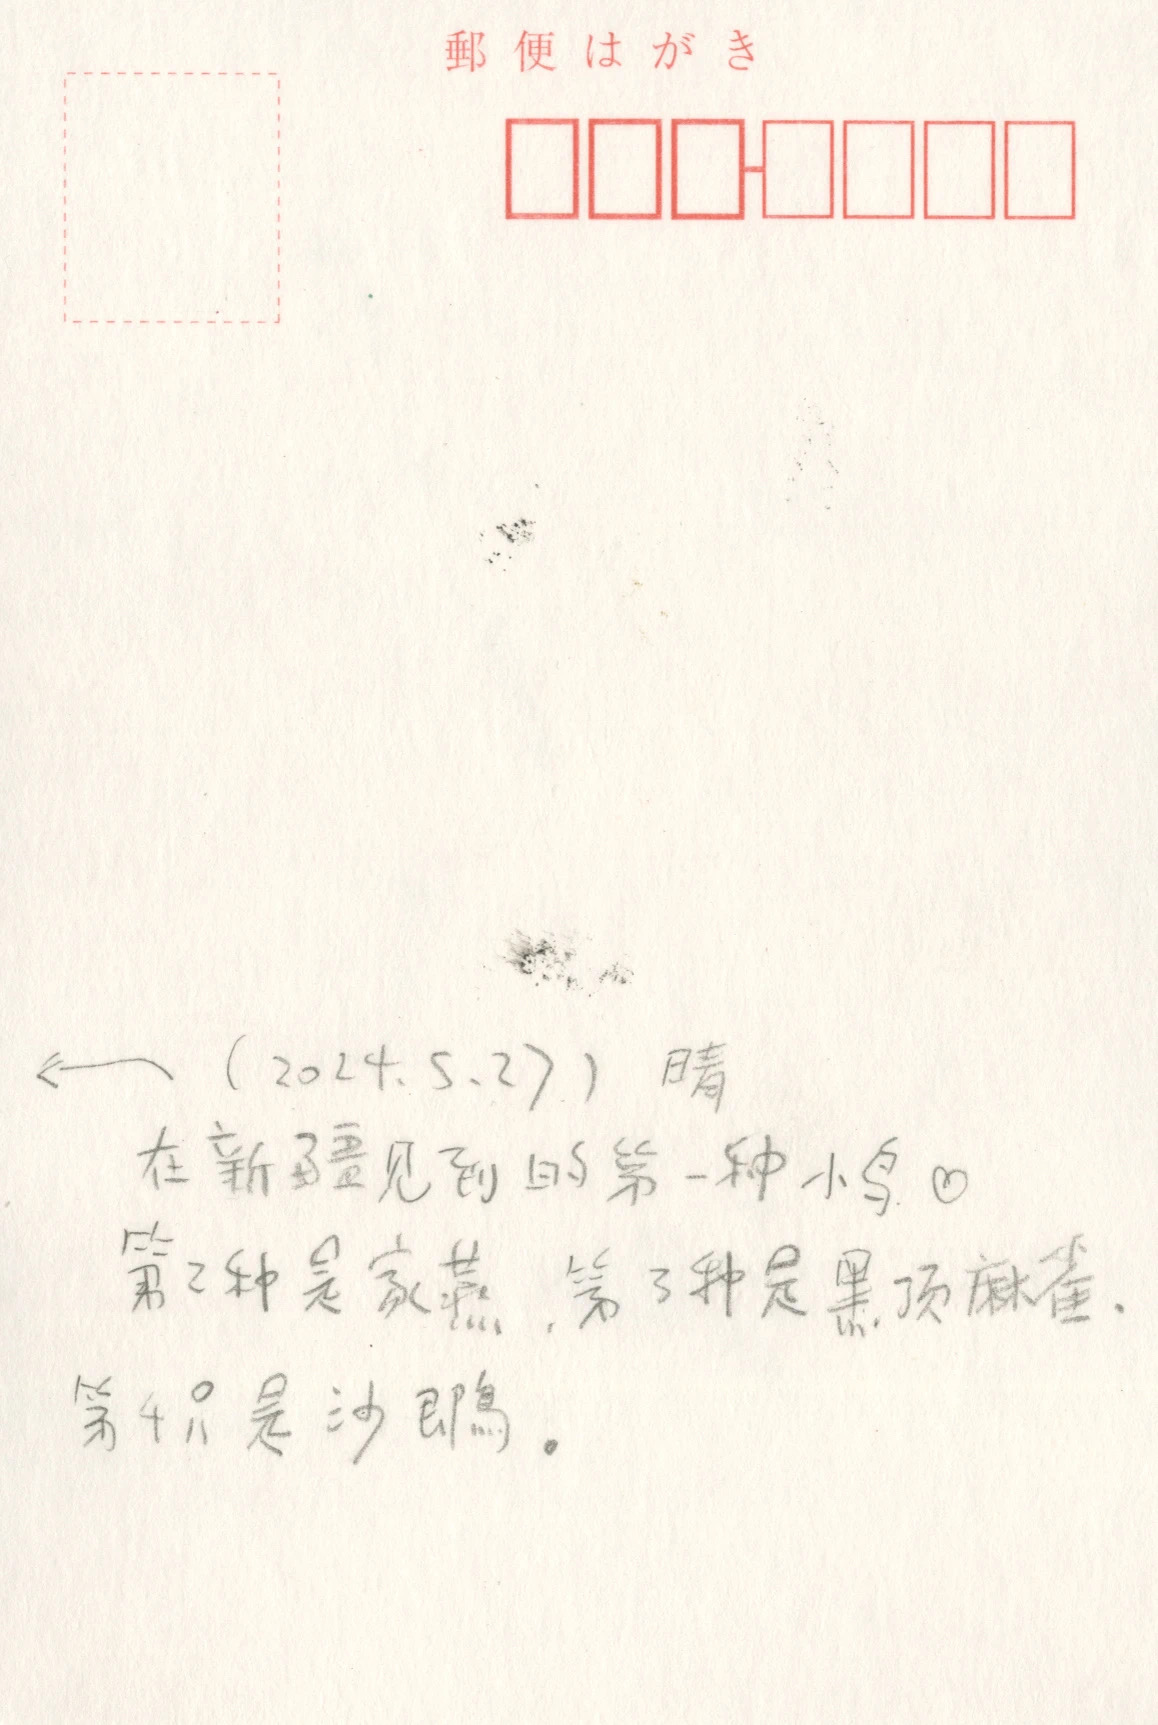 郵便はがき
(2024.5.27.) 晴
在新疆见到的第一种小鸟♡
第2种是家燕,第3种是黑顶麻雀.
第4只是沙即鳥。